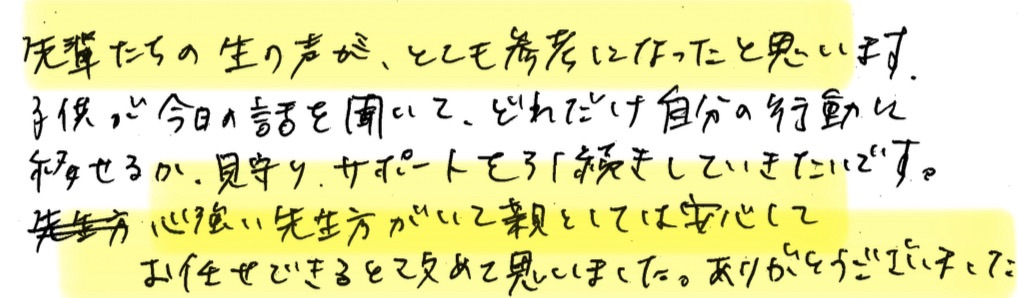 先輩たちの生の声が、とても参考になったと思います.
子供が今日の話を聞いて、どれだけ自分の行動に
移せるか、見守り、サポートを引続きしていきたいです。
先生方 心強い先生方がいて親としては安心して
お任せできると改めて思いました。ありがとうございました